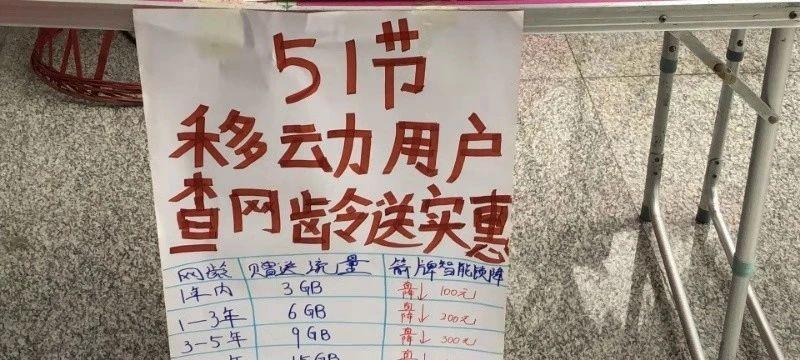 51节
移动用户
查网龄送实惠
网龄 赠送流量 箭牌智能
1年内 3GB 直降↓100元
1—3年 6GB 直降↓200元
3-5年 9GB 直降↓300元
15GB